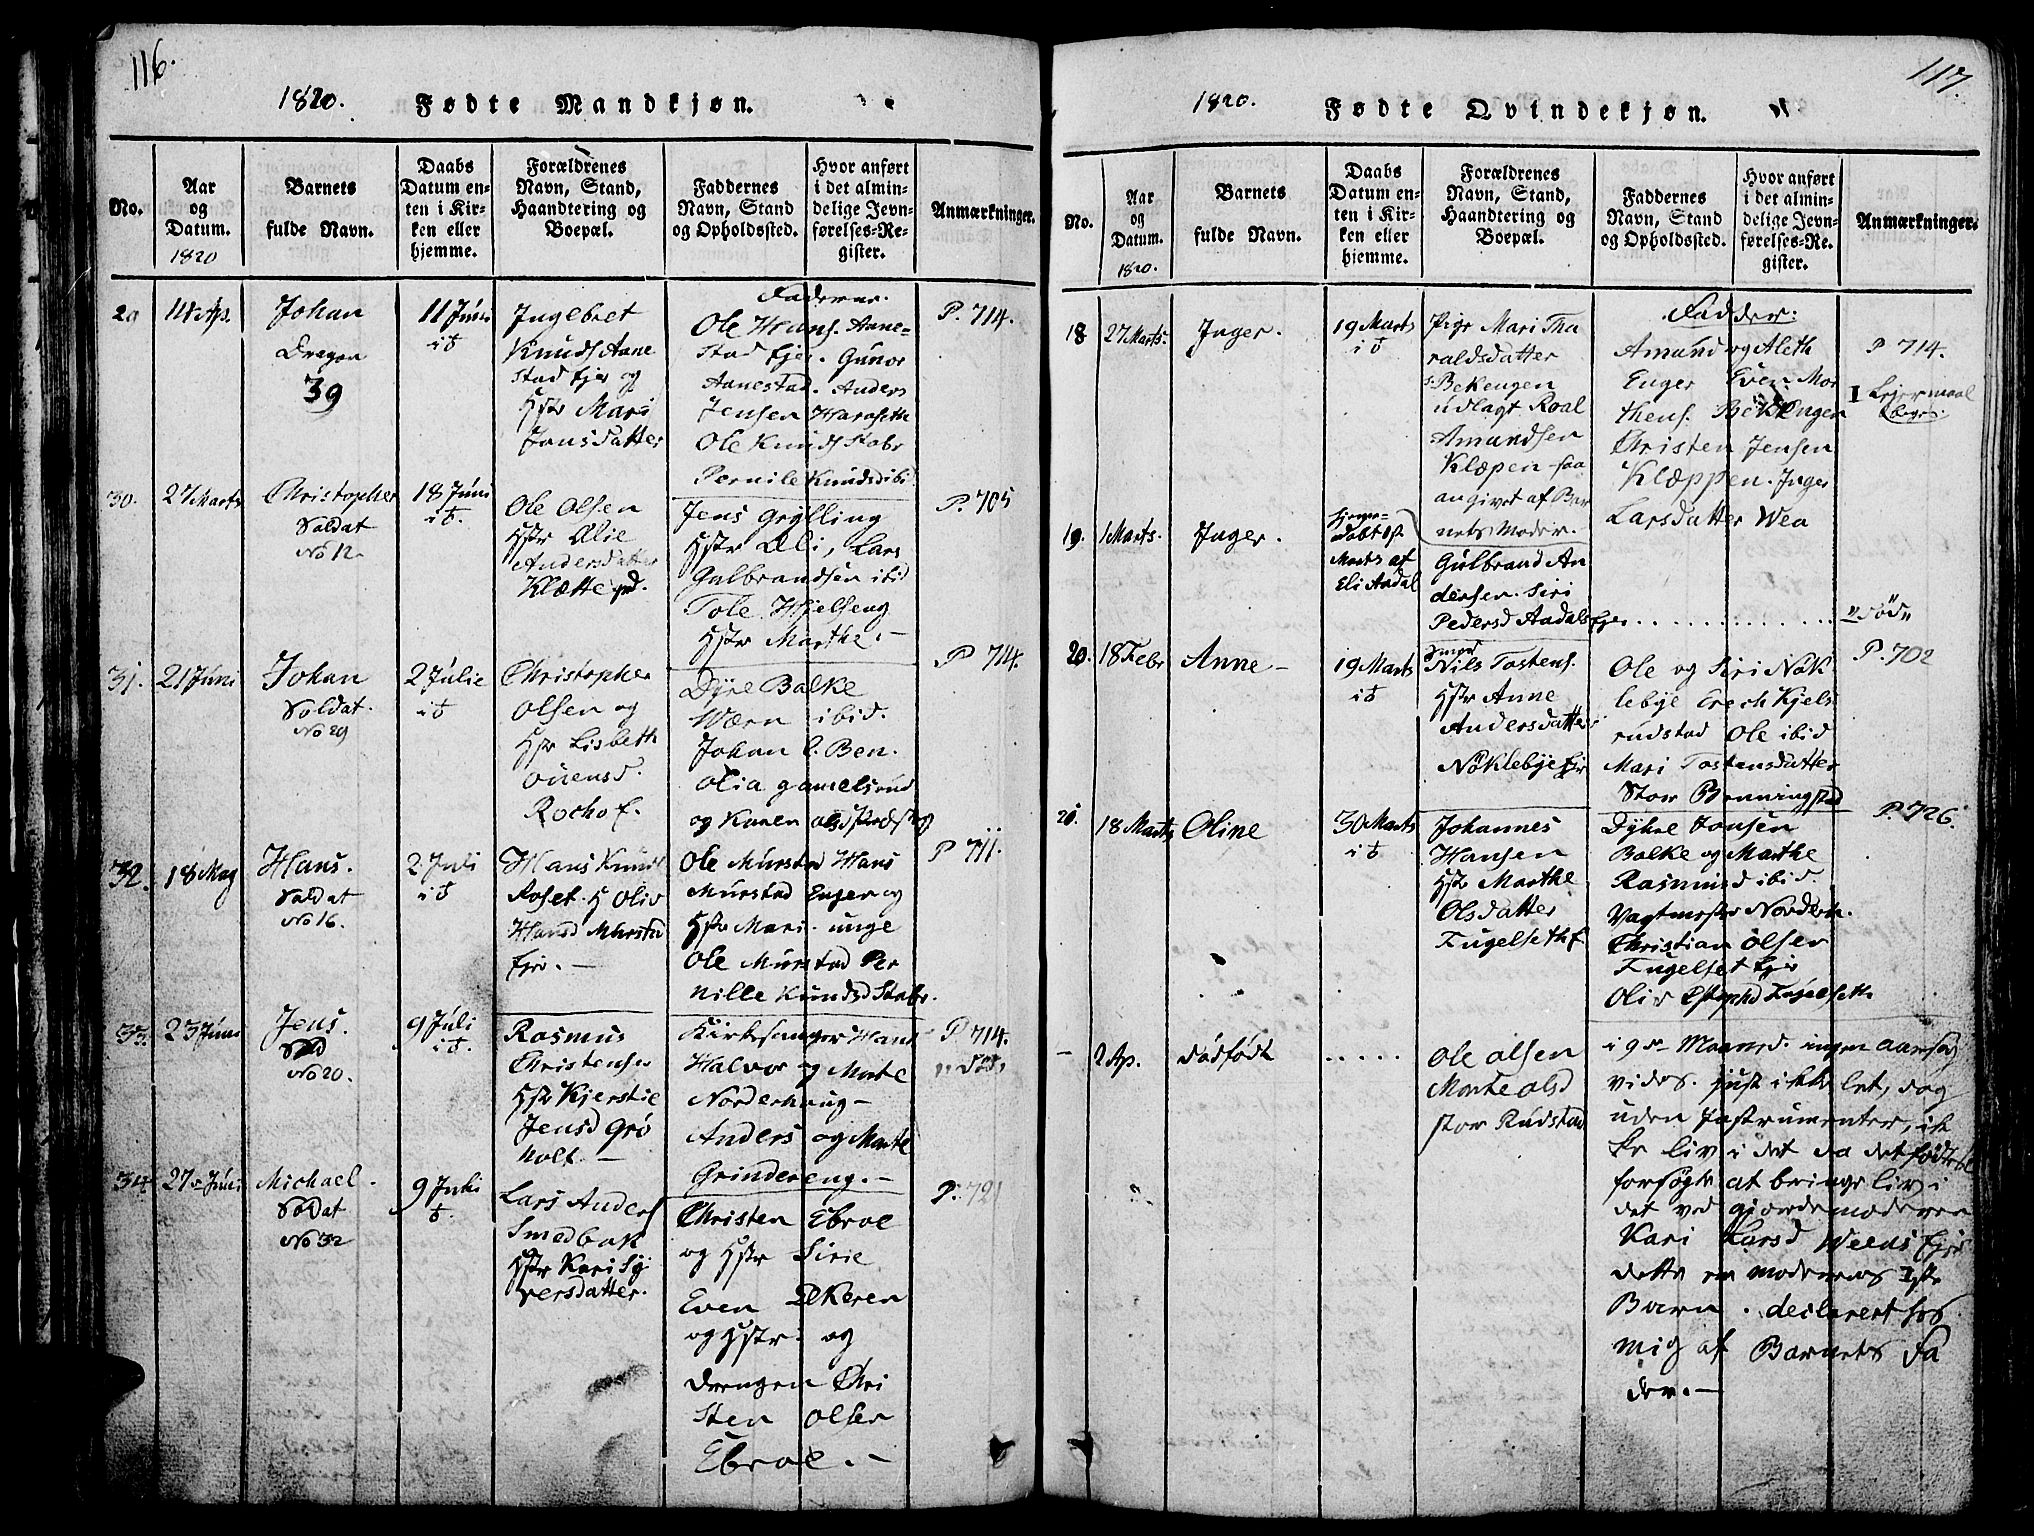 116.
1820. Fødte Mandkjøn.
No.
Aar
og
Datum.
1820
Barnets
fulde Navn.
Daabs
Datum en-
ten i Kir-
ken eller
hjemme.
Forældrenes
Navn, Stand,
Haandtering og
Boepæl.
Faddernes
Navn, Stand
og Opholdssted.
Hvor anført
i det almin-
delige Jevn-
førelses-Re-
gister.
Anmærkninger.
29
Ap.
Johan
Dragon
39
11 Juni
Ingebret
Knuds Anne
stad Ejer og
Hstr Mari
Jonsdatter
Fadderne.
Ole Hans. Anne-
stad Ejer. Gunor
Annestad. Anders
Jensen Haraseth
Ole Knuds Stabr
Pernile Knudsd ibid
P. 714.
30.
27 Marts
Christopher
Soldat
No 12.
18 Juni
Ole Olsen
Hstr Olie
Andersdatter
Klætte
Jens Grylling
Hstr Oli, Lars
Gulbrandsen ibid
Tole Hjelseng
Hstr Marthe. —
P. 705
31.
21 Juni
Johan
Soldat.
No 29
2 Julie
Christopher
Olsen og
Hstr Lisbeth
Rocho
Dyre Balke
ibid.
Johan
Olia
og Karen
P. 714.
32.
18 May
Hans.
Soldat
No 16.
2 Juli
Hans Knuds
Roset. H Oliv
Hansd Murstad
Ejer. —
Ole Murstad Hans
Murstad Enger og
Hstr Mari. unge
Ole Murstad Per
nille Knudsd Stabr.
P 711.
33.
23 Juni
Jens.
Sold
No 20.
9 Juli
Rasmus
Christensen
Hstr Kjerstie
Jensd Grø
holt. —
Kirksanger Hans
Halvor og Marte
Norderhaug —
Anders og Marte
Grindereng. —
P. 714.
død.
34
27 Juni
Michael.
Soldat
No 32
9 Juli
Lars Anders
Smedbak
Hstr Kari Sy
versdatter.
Christen Ebroe
og Hstr Sirie
Even
og Hstr: og
drengen Chri
sten Olsen
Ebroe. —
P.
117.
1820. Fødte Qvindekjøn.
No.
Aar
og
Datum.
1820.
Barnets
fulde Navn.
Daabs
Datum en-
ten i Kir-
ken eller
hjemme.
Forældrenes
Navn, Stand,
Haandtering og
Boepæl.
Faddernes
Navn, Stand
og Opholdssted.
Hvor anført
i det almin-
delige Jevn-
førelses-Re-
gister.
Anmærkninger.
18
27 Marts.
Inger.
19 Marts
Pige Mari Tha
raldsdatter
Bekengen
udlagt Roal
Amundsen
Klæpen saa
angivet af Bar
nets Moder.
Fadder:
Amund og Aleth
Enger Even Mor
thens. Bekkengen
Christen Jensen
Klæppen. Inger
Larsdatter Wea
P 714.
I Lejermaal
19.
1 Marts.
Inger.
hjemme-
døbt
Marts af
Eli Andal
Gulbrand An
dersen. Siri
Pedersd Andals Ejer
"død"
20.
18 Febr
Anne —
19 Marts
Smed
Nils Tostens.
Hstr Anne
Andersdatter
Nøklebye Ejer
Ole og Siri Nøk
lebye Erech Kjels
rudstad Ole ibid
Mari Tostensdatter
Stor Benningstad
P. 702
21.
18 Marts
Oline
30 Marts
Johannes
Hansen
Hstr Marthe
Olsdatter
Fugelseth E.
Dyhre Jonsen
Balke og Marthe
Rasmusd ibid.
Vagtmester Norder.
Christian Olsen
Fugelset Ejer
Oliv Fugelseth
P. 726.
—
2 Ap.
dødfødt
. . . . .
Ole Olsen
Marte Olsd
stor Rudstad
i 9de Maaned. ingen aarsag
vides. just ikke let, dog
uden Instrumenter, ik
ke liv i det da det fødtes
forsøgte at bringe liv i
det ved gjordemoderen
Kari Larsd Weens Ejer
dette er moderens 1ste
Barn. declarert for
mig af Barnets Fa
der. —